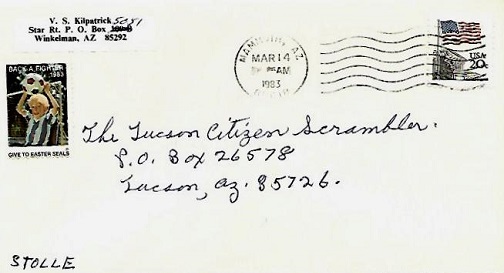 V. S. Kilpatrick 5051
Star Rt. P. O. Box
Winkelman, AZ 85292
MAMMOTH, AZ
MAR 14
AM
1983
USA
20c
BACK A FIGHTER
1983
GIVE TO EASTER SEALS
The Tucson Citizen Scrambler.
P.O. Box 26578
Tucson, Az. 85726.
STOLLE